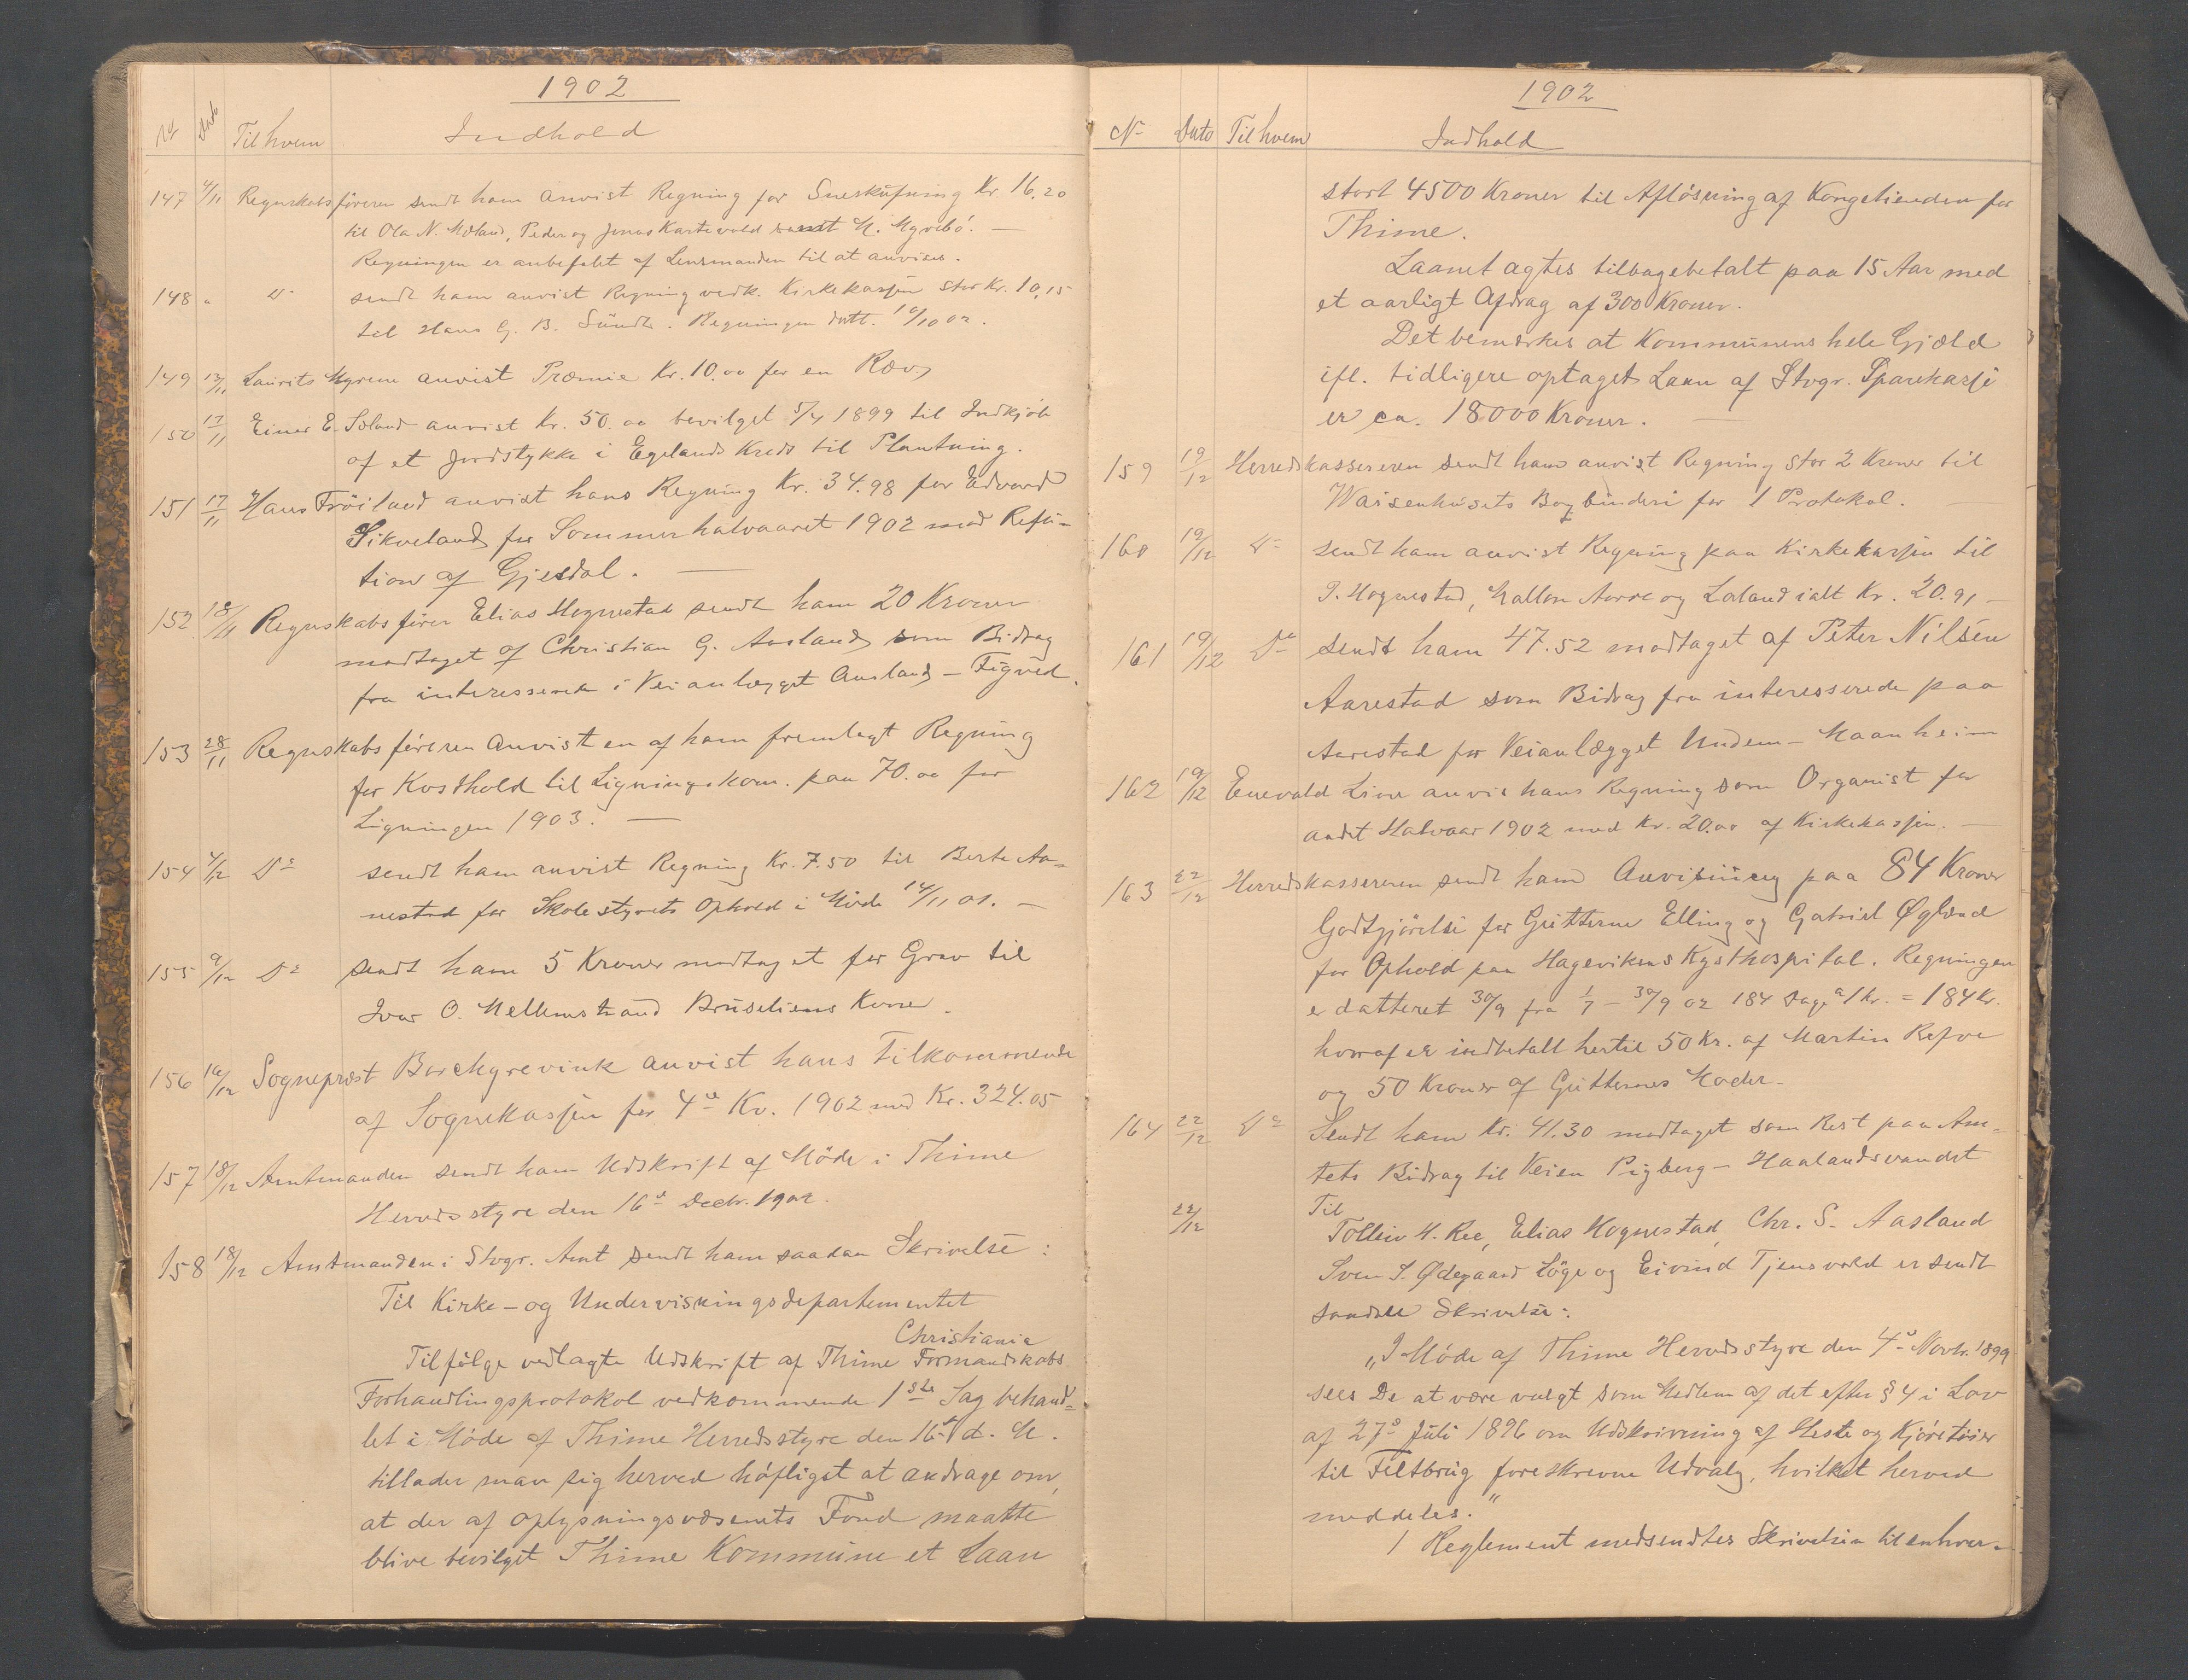 1902
No Dato Til hvem Indhold
147 4/11 Regnskabsføreren sendt ham anvist Regning for Sneskufning Kr. 16,20
til Ola N. Mæland, Peder og Jonas Kartevold samt M. Myrebø. —
Regningen er anbefalet af Lensmanden til at anvises.
148 " Do sendt ham anvist Regning vedk. Kirkekassen stor Kr. 10,15
til Hans G. B. Sundt. Regningen datt. 10/10 02.
149 13/11 Laurits Myrene anvist Præmie Kr. 10.00 for en Ræv
150 17/11 Einer E. Soland anvist Kr. 50.00 bevilget 5/4 1899 til Indkjøb
af et Jordstykke i Egelands Kreds til Plantning.
151 17/11 Hans Frøiland anvist hans Regning Kr. 34.98 for Edvard
Sikveland for Sommerhalvaaret 1902 mod Refu-
tion af Gjesdal. —
152 18/11 Regnskabsfører Elias Hognestad sendt ham 20 Kroner
modtaget af Christian G. Aasland som Bidrag
fra interesserede i Veianlægget Aasland - Fugved.
153 28/11 Regnskabsføreren anvist en af ham fremlagt Regning
for Kosthold til Ligningskom. paa 70.00 for
Ligningen 1903. —
154 4/12 Do sendt ham anvist Regning Kr. 7.50 til Berte Aa-
nestad for Skolestyrets Ophold i Møde 14/11 01. —
155 9/12 Do sendt ham 5 Kroner modtaget for Grav til
Ivar O. Mellemstrand Bruseliens Kone.
156 16/12 Sogneprest Borchgrevink anvist hans Tilkommende
af Sognekassen for 4de Kv. 1902 med Kr. 324.05
157 18/12 Amtmanden sendt ham Udskrift af Møde i Thime
Herredsstyre den 16de Decbr. 1902.
158 18/12 Amtmanden i Stvgr. Amt sendt ham saadan Skrivelse:
Til Kirke- og Undervisningsdepartementet
Christiania
Tilfølge vedlagte Udskrift af Thime Formandskabs
Forhandlingsprotokol vedkommende 1ste Sag behand-
let i Møde af Thime Herredsstyre den 16de d. M.
tillader man sig herved høfligst at andrage om,
at der af Oplysningsvæsenets Fond maatte
blive bevilget Thime Kommune et Laan
1902
No Dato Til hvem Indhold
stort 4500 Kroner til Afløsning af Kongetienden for
Thime.
Laanet agtes tilbagebetalt paa 15 Aar med
et aarligt Afdrag af 300 Kroner.
Det bemærkes at Kommunens hele Gjæld
ifl. tidligere optaget Laan af Stvgr. Sparekasse
er ca. 18000 Kroner. —
159 19/12 Herredskassereren sendt ham anvist Regning stor 2 Kroner til
Waisenhusets Bogbinderi for 1 Protokol. —
160 19/12 Do sendt ham anvist Regning paa Kirkekassen til
P. Hognestad, Mallon Aarre og Laland ialt Kr. 20.91 —
161 19/12 Do sendt ham 47.52 modtaget af Peter Nilsen
Aarestad som Bidrag fra interesserede paa
Aarestad for Veianlægget Undem - Maanheim
162 19/12 Enevald Line anvis hans Regning som Organist for
andet Halvaar 1902 med Kr. 20.00 af Kirkekassen. —
163 22/12 Herredskassereren sendt ham Anvisning paa 84 Kroner
Godtgjørelse for Gutterne Elling og Gabriel Øglænd
for Ophold paa Hagevikens Kysthospital. Regningen
er datteret 30/9 fra 1/7 - 30/9 02 184 Dage a 1 Kr. = 184 Kr.
hvoraf er indbetalt hertil 50 Kr. af Martin Refve
og 50 Kroner af Gutternes Moder.
164 22/12 Do Sendt ham Kr. 41.30 modtaget som Rest paa Am-
tets Bidrag til Veien Pigberg - Haalandsvandet
22/12 Til
Tollein H. Ree, Elias Hognestad, Chr. S. Aasland
Sven S. Ødegaard Løge og Eivind Tjensvold er sendt
saadan Skrivelse:
„I Møde af Thime Herredsstyre den 4de Novbr. 1899
sees De at være valgt som Medlem af det efter § 4 i Lov
af 27de Juli 1896 om Udskrivning af Heste og Kjøretøier
til Feltbrug foreskrevne Udvalg, hvilket herved
meddeles."
1 Reglement medsendtes Skrivelsen til enhver.